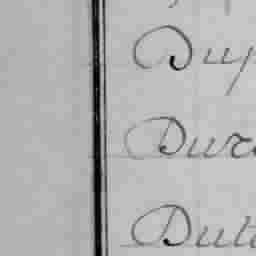 Dup
Dur
Dut